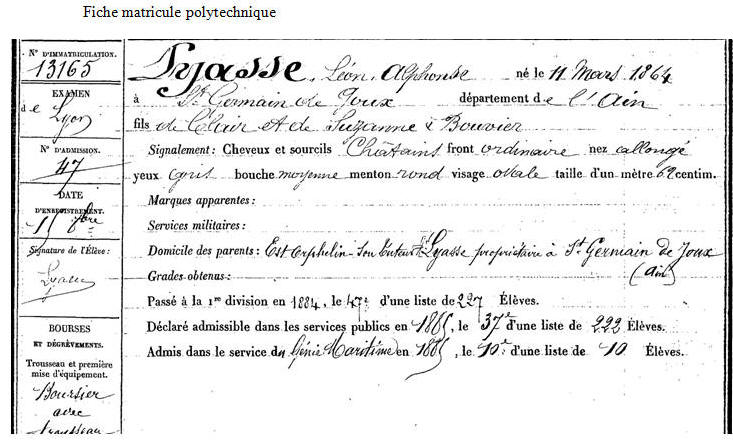 Fiche matricule polytechnique
N° D'IMMATRICULATION.
13165
EXAMEN
de Lyon
N° D'ADMISSION.
47
DATE
D'ENREGISTREMENT.
Signature de l'Élève:
Lyasse
BOURSES
ET DÉGRÈVEMENTS.
Trousseau et première
mise d'équipement.
Boursier
avec
trousseau
Lyasse, Léon, Alphonse né le 11 Mars 1864
à St Germain de Joux département de l'Ain
fils de Clair et de Suzanne Bouvier
Signalement: Cheveux et sourcils Châtains front ordinaire nez allongé
yeux gris bouche moyenne menton rond visage ovale taille d'un mètre 62 centim.
Marques apparentes:
Services militaires:
Domicile des parents: Est Orphelin - Son tuteur Lyasse propriétaire à St Germain de Joux
(Ain)
Grades obtenus:
Passé à la 1re division en 1884, le 47e d'une liste de 227 Élèves.
Déclaré admissible dans les services publics en 1885, le 37e d'une liste de 222 Élèves.
Admis dans le service du Génie Maritime en 1885, le 10e d'une liste de 10 Élèves.